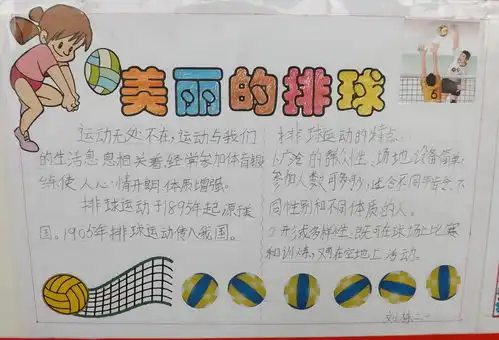 美丽的排球
运动无处不在,运动与我们
的生活息息相关着,经常参加体育锻
练使人心情开朗体质增强。
排球运动于1895年起源
国。1905年排球运动传入我国。
排球运动的特点:
1.广泛的群众性、场地,设备简单,
参加人数可多可少,适合不同年令,不
同性别和不同体质的人。
2.形式多样性:既可在球场上比赛
和训练,又可在空地上活动。
6